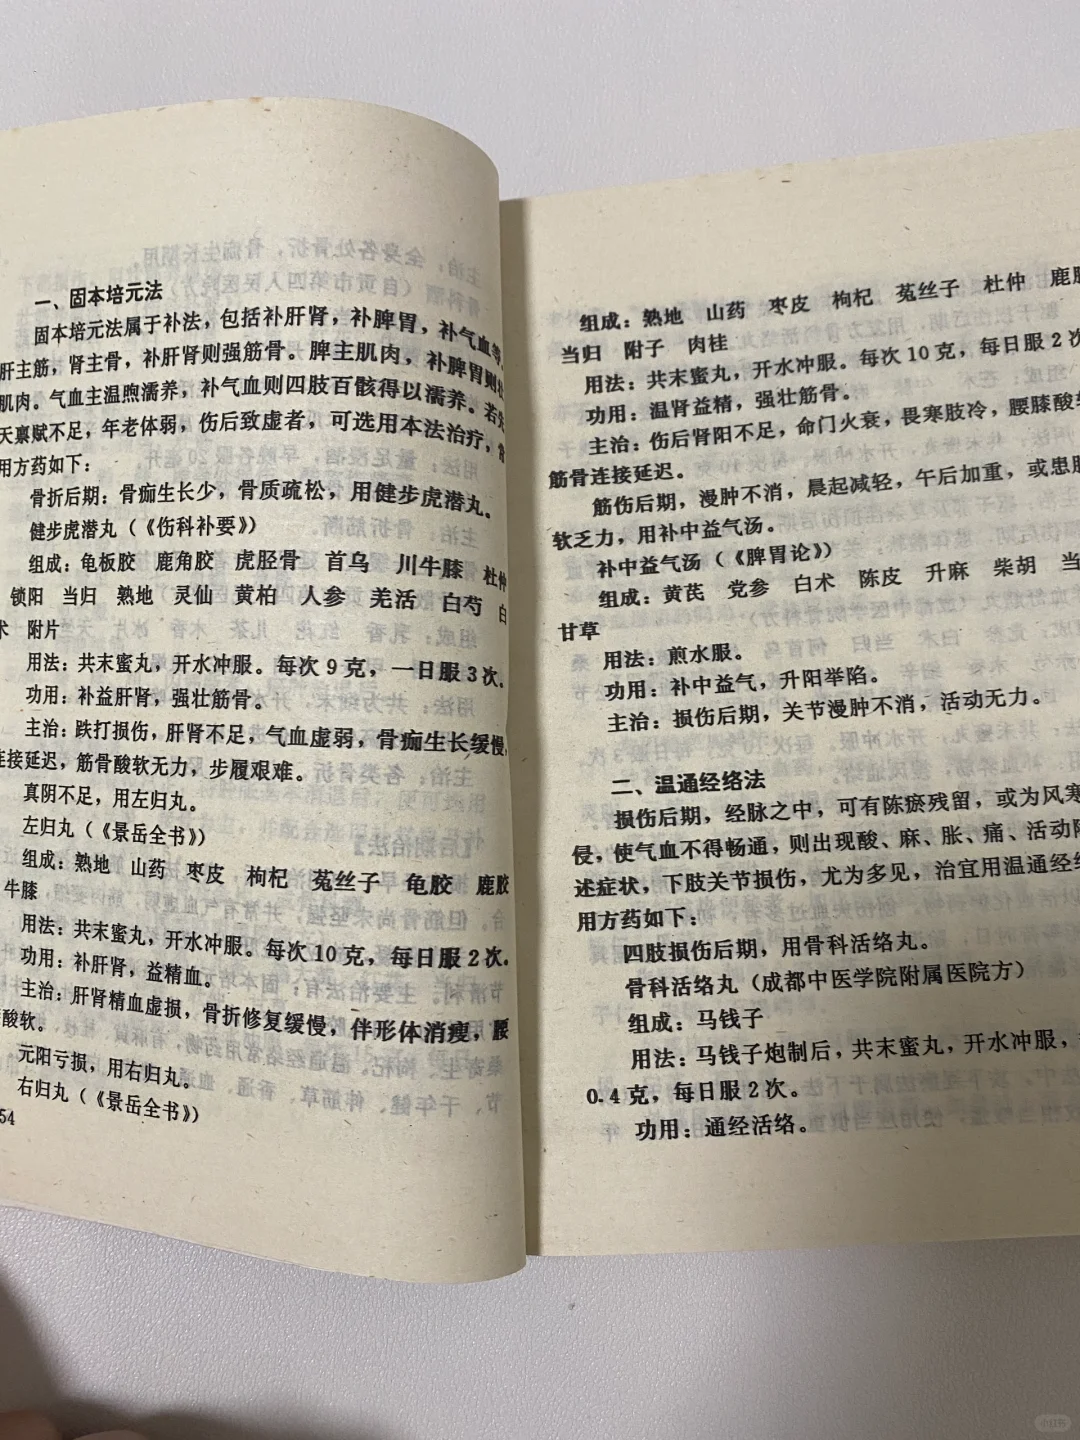 一、固本培元法
固本培元法属于补法，包括补肝肾，补脾胃，补气血等，
肝主筋，肾主骨，补肝肾则强筋骨。脾主肌肉，补脾胃则壮
肌肉。气血主温煦濡养，补气血则四肢百骸得以濡养。若先
天禀赋不足，年老体弱，伤后致虚者，可选用本法治疗，常
用方药如下：
骨折后期：骨痂生长少，骨质疏松，用健步虎潜丸。
健步虎潜丸（《伤科补要》）
组成：龟板胶 鹿角胶 虎胫骨 首乌 川牛膝 杜仲
锁阳 当归 熟地 灵仙 黄柏 人参 羌活 白芍 白
术 附片
用法：共末蜜丸，开水冲服。每次9克，一日服3次。
功用：补益肝肾，强壮筋骨。
主治：跌打损伤，肝肾不足，气血虚弱，骨痂生长缓慢，
连接延迟，筋骨酸软无力，步履艰难。
真阴不足，用左归丸。
左归丸（《景岳全书》）
组成：熟地 山药 枣皮 枸杞 菟丝子 龟胶 鹿胶
牛膝
用法：共末蜜丸，开水冲服。每次10克，每日服2次。
功用：补肝肾，益精血。
主治：肝肾精血虚损，骨折修复缓慢，伴形体消瘦，腰
酸软。
元阳亏损，用右归丸。
右归丸（《景岳全书》）
54
组成：熟地 山药 枣皮 枸杞 菟丝子 杜仲 鹿胶
当归 附子 肉桂
用法：共末蜜丸，开水冲服。每次10克，每日服2次
功用：温肾益精，强壮筋骨。
主治：伤后肾阳不足，命门火衰，畏寒肢冷，腰膝酸软
筋骨连接延迟。
筋伤后期，漫肿不消，晨起减轻，午后加重，或患肢
软乏力，用补中益气汤。
补中益气汤（《脾胃论》）
组成：黄芪 党参 白术 陈皮 升麻 柴胡 当
甘草
用法：煎水服。
功用：补中益气，升阳举陷。
主治：损伤后期，关节漫肿不消，活动无力。
二、温通经络法
损伤后期，经脉之中，可有陈瘀残留，或为风寒
侵，使气血不得畅通，则出现酸、麻、胀、痛、活动障
述症状，下肢关节损伤，尤为多见，治宜用温通经络
用方药如下：
四肢损伤后期，用骨科活络丸。
骨科活络丸（成都中医学院附属医院方）
组成：马钱子
用法：马钱子炮制后，共末蜜丸，开水冲服，
0.4克，每日服2次。
功用：通经活络。